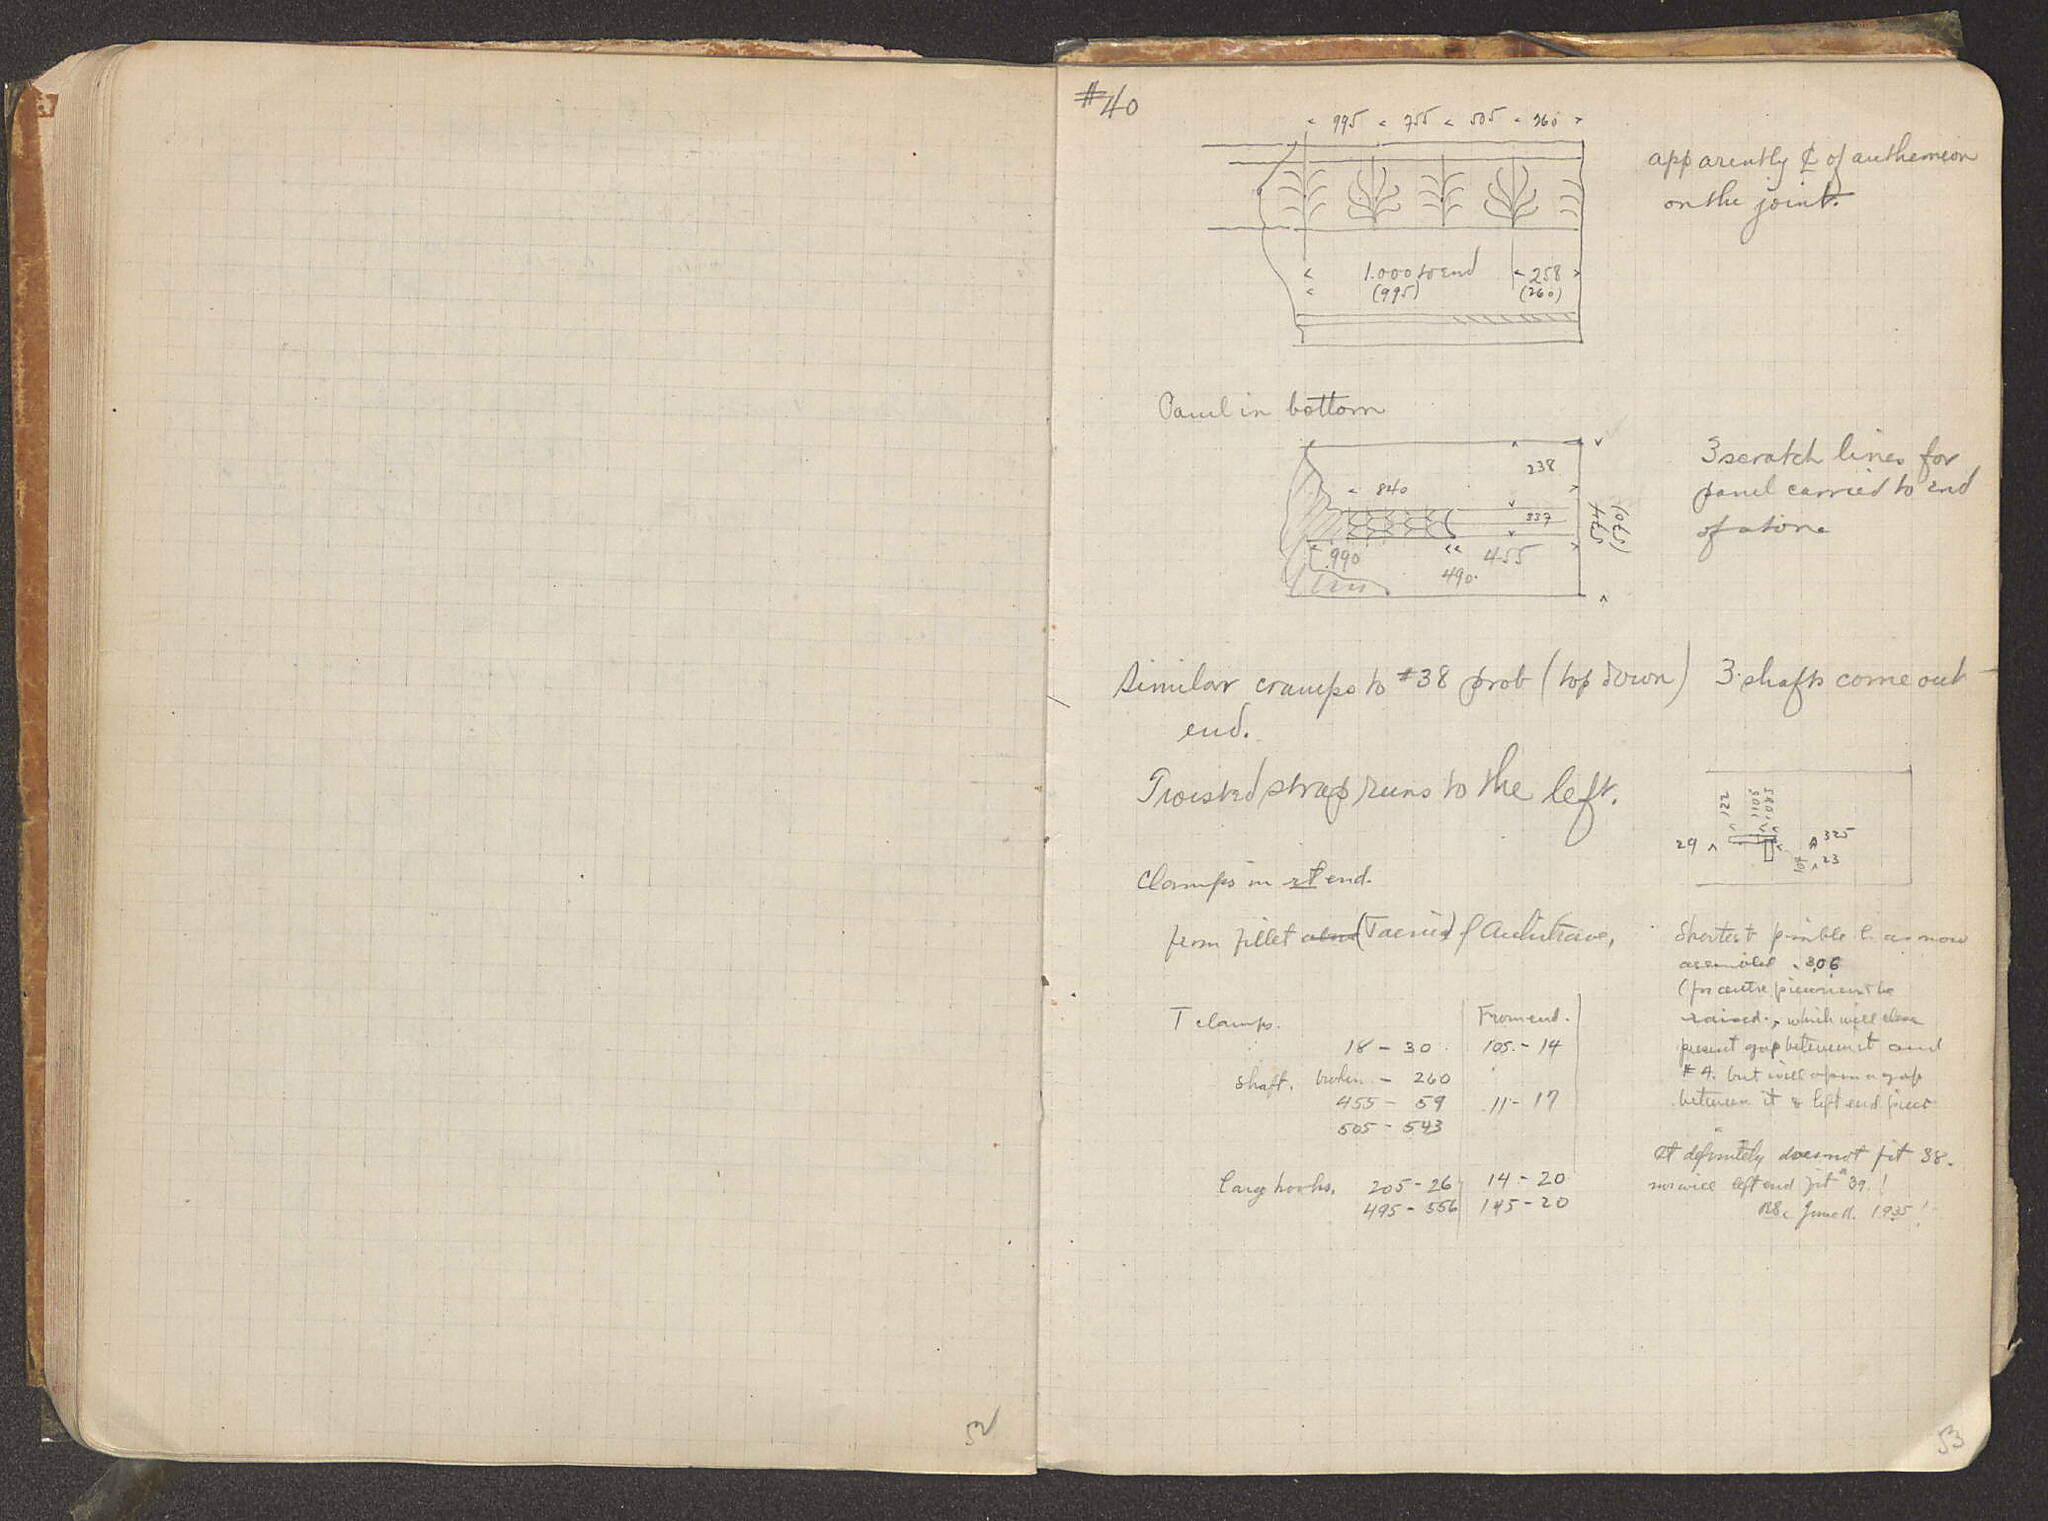 #40
< 995 < 755 < 505 < 260 >
apparently ℄ of anthemion
on the joint.
< 1.000 to end < 258 >
< (995) (260)
Panel in bottom
238
3 scratch lines for
panel carried to end
of stone
< 840 >
337
.990 << 455 >
490.
Similar cramps to #38 prob (top down) 3 shafts come out
end.
Twisted strap runs to the left.
122
1105
1085
29
325
23
Clamps in rt end.
from fillet (Taenia) of Architrave,
Shortest possible L as now
assembled .306
(for centre piece must be
raised, which will close
present gap between it and
#4. but will open a gap
between it & left end piece
T clamps. From end.
18 - 30 105. - 14
shaft. broken - 260
455 - 59 11 - 17
505 - 543
It definitely does not fit 38.
Large hooks. 205 - 26 14 - 20
nor will left end fit 39.!
495 - 556 145 - 20
June 1935!
52
53